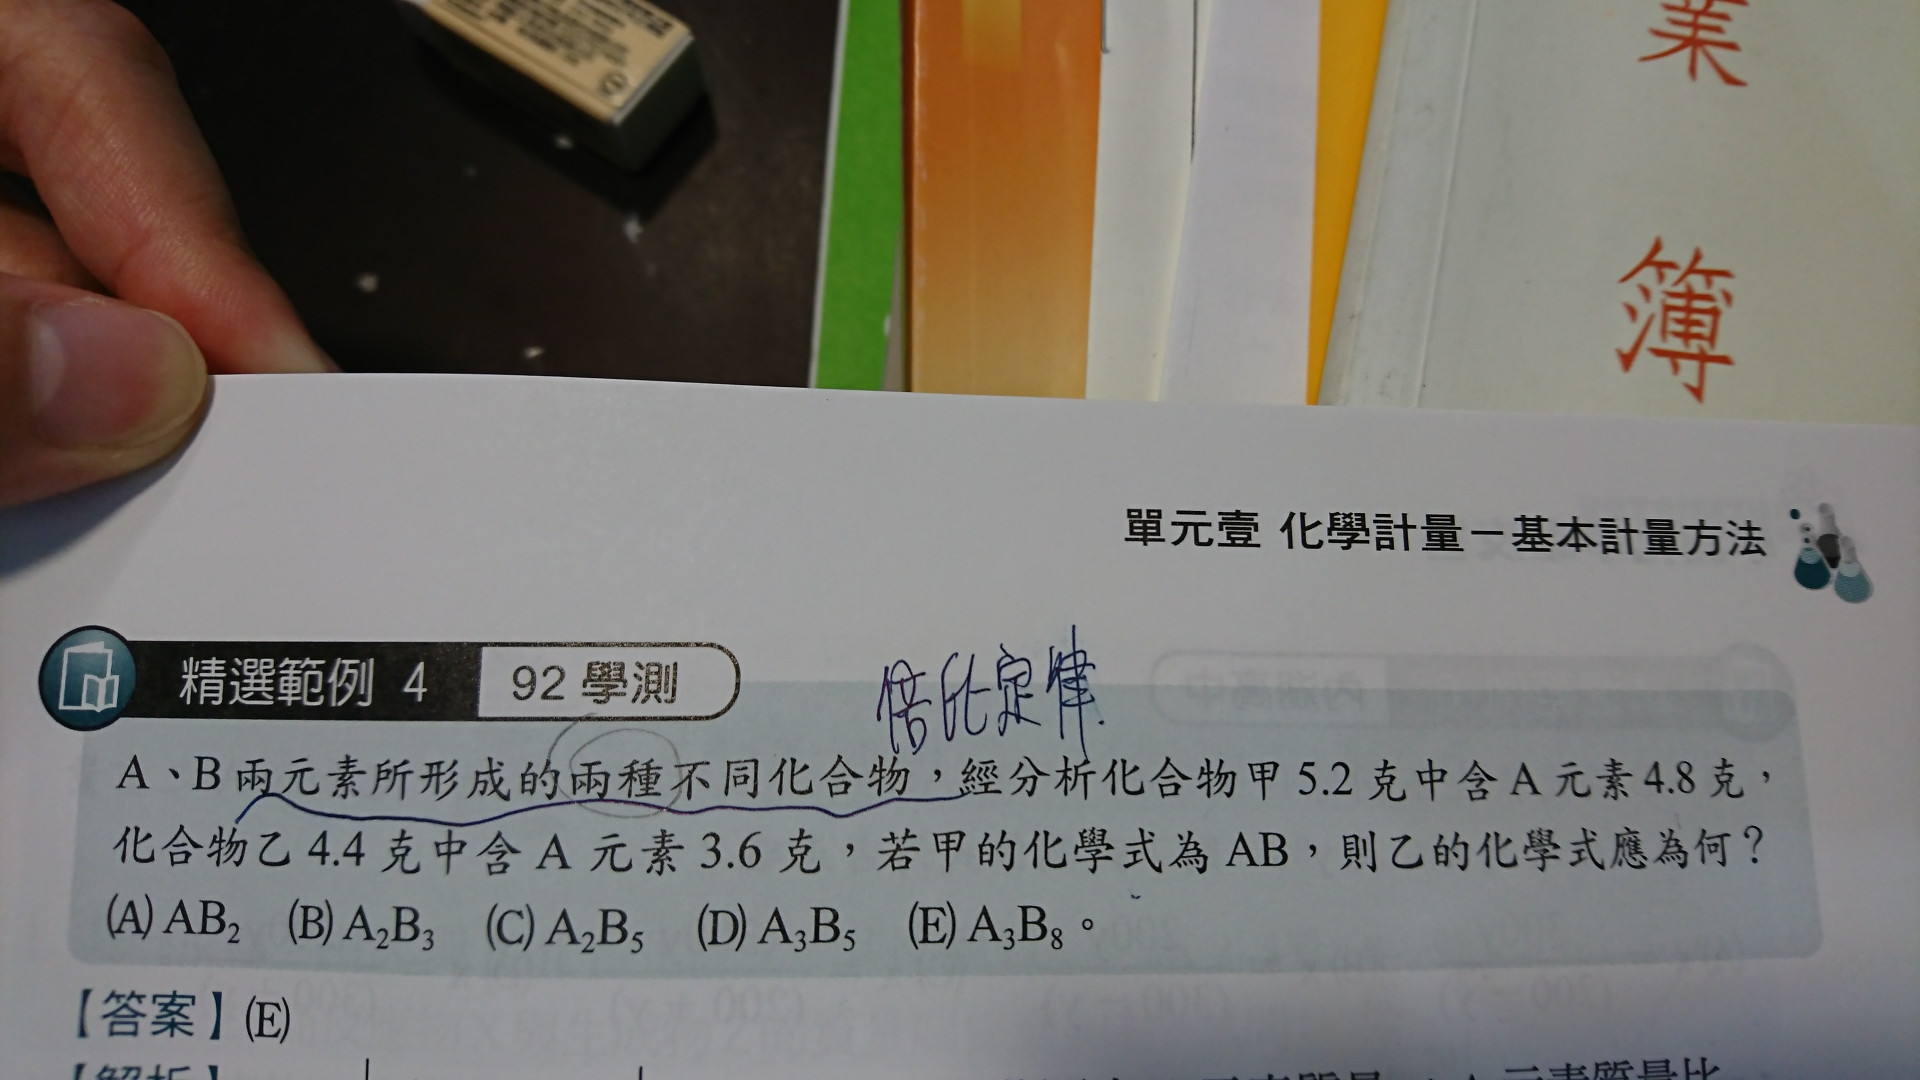 業
簿
單元壹 化學計量－基本計量方法
精選範例 4 92 學測
倍比定律
A、B 兩元素所形成的兩種不同化合物，經分析化合物甲 5.2 克中含 A 元素 4.8 克，
化合物乙 4.4 克中含 A 元素 3.6 克，若甲的化學式為 AB，則乙的化學式應為何？
(A) AB₂ (B) A₂B₃ (C) A₂B₅ (D) A₃B₅ (E) A₃B₈。
【答案】(E)
【解析】
元素質量比